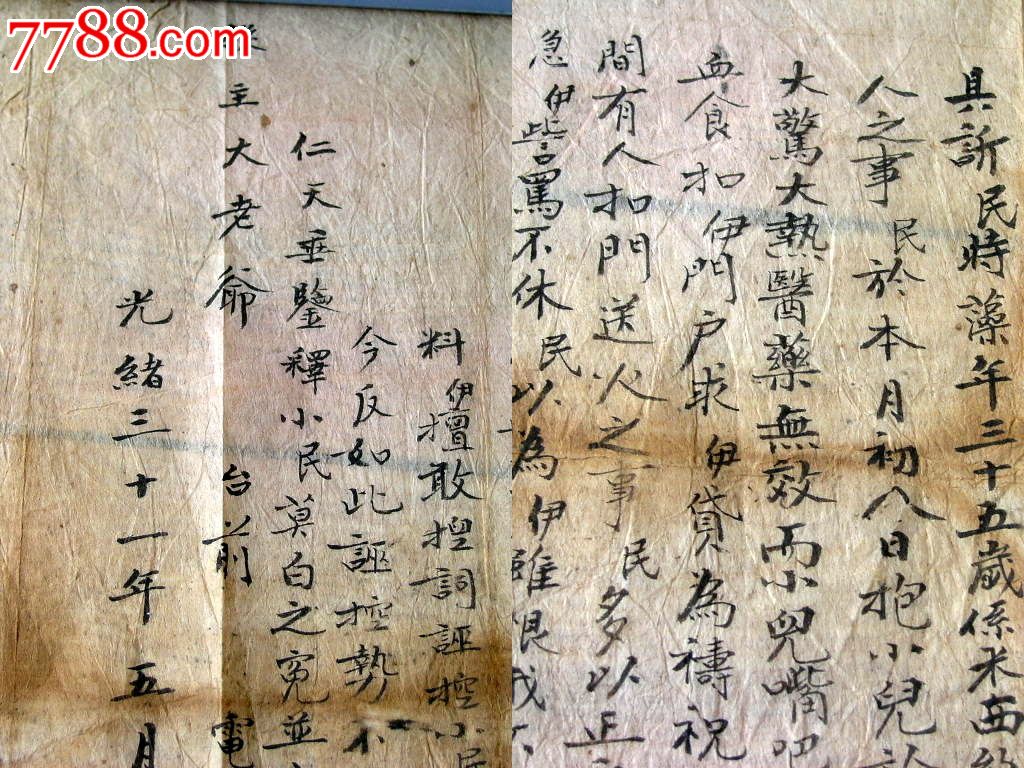 7788.com
具訴民時藻年三十五歲係米西
人之事民於本月初八日抱小兒
大驚大熱醫藥無效而小兒嘴吧
血食扣伊門戶求伊貸為禱祝
間有人扣門送火之事民多以正
急伊訾罵不休民以為伊雖恨我
料伊擅敢捏詞誣控小民
今反如此誣控勢不
仁天垂鑒釋小民莫白之冤並
主大老爺台前電
光緒三十一年五月